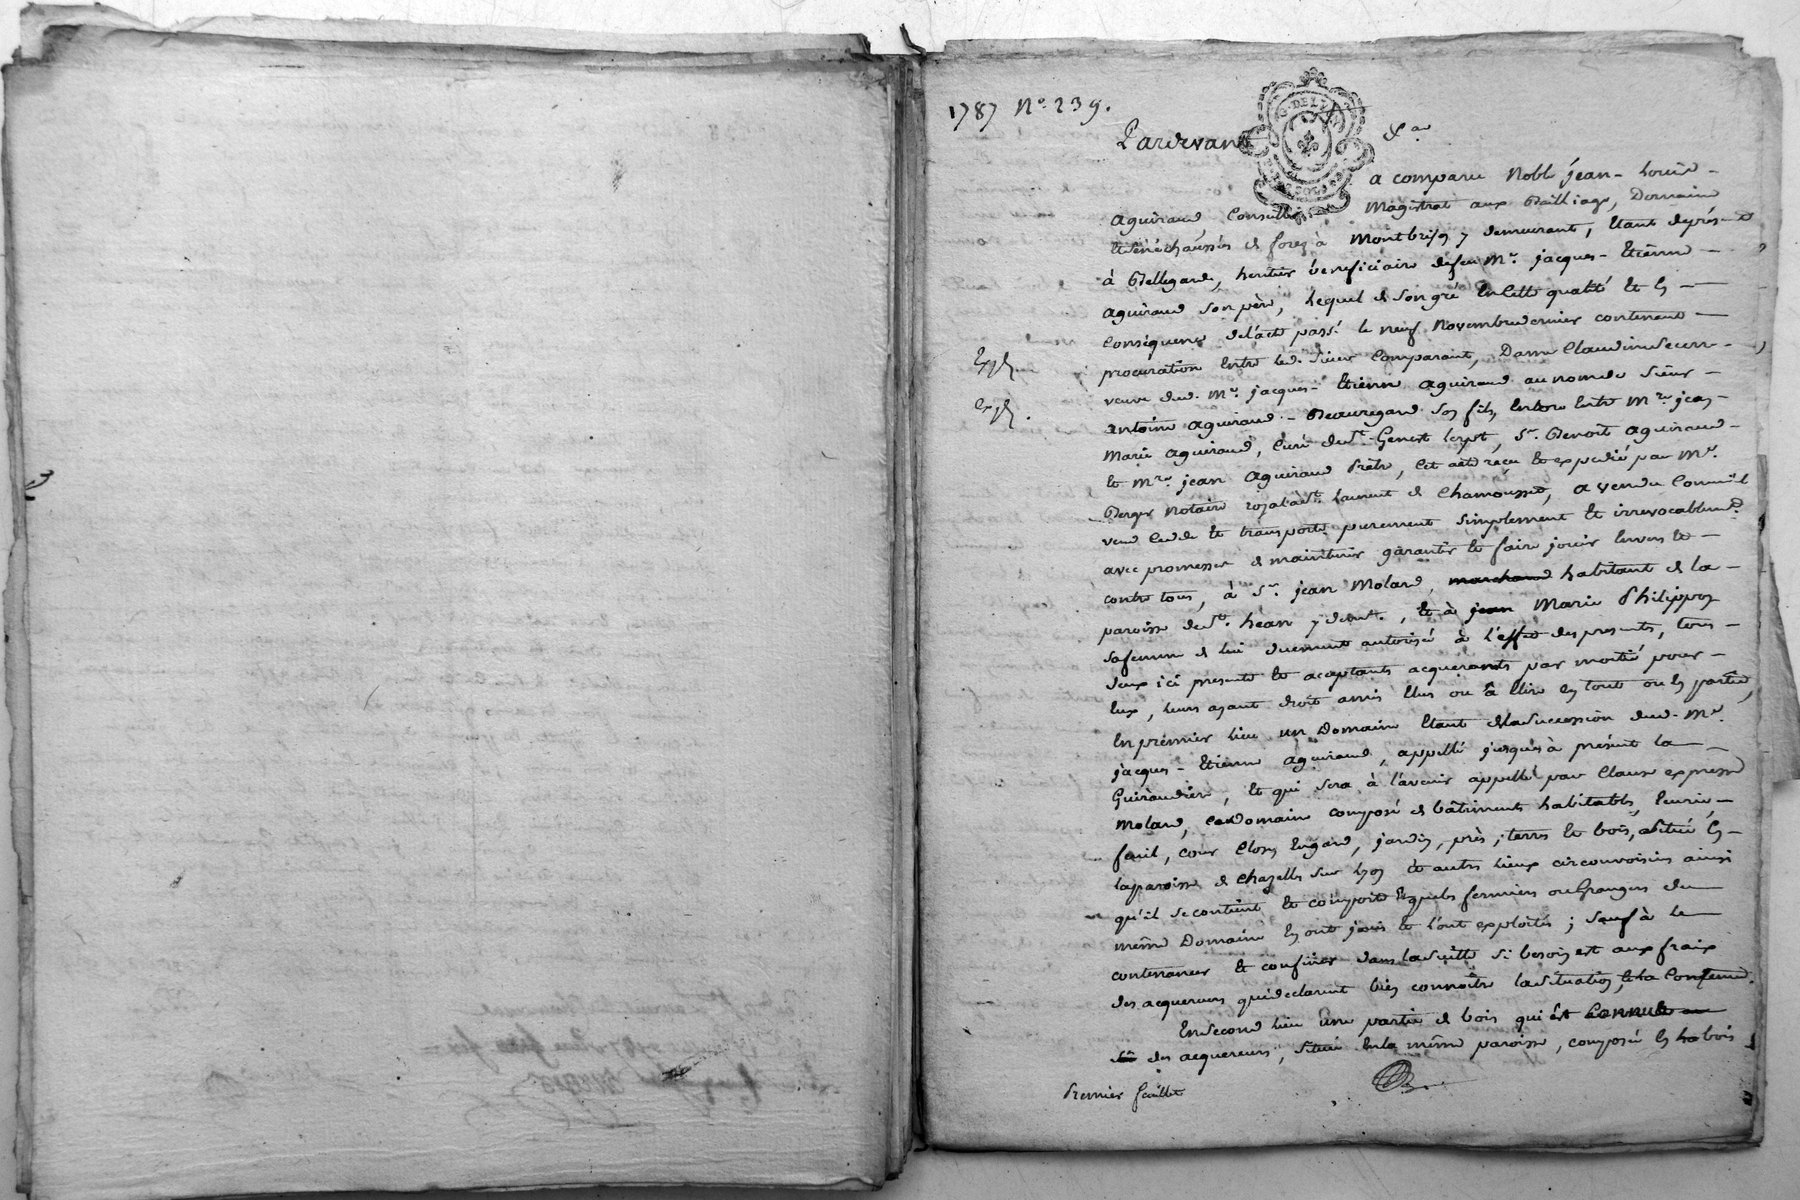 1787 N.o 239.
Pardevant &.a
G. DE LYON
a comparu Noble jean - Louis -
aguiraud Conseiller Magistrat aux Bailliage, Domaine
et sénéchaussée de forez à Montbrison y demeurant, étant de présent
à Bellegarde, heritier béneficiaire de feu M.r jacques - Etienne -
aguiraud son père, lequel de son gré en cette qualité et en -
conséquence de l'acte passé le neuf Novembre dernier contenant -
procuration entre led. sieur Comparant, Dame Claudine
veuve dud. M.r jacques - Etienne aguiraud au nom de sieur -
antoine aguiraud - Beauregard son fils, entre M.re jean -
Marie aguiraud, Curé de S.t Genest Lerpt, S.r Benoit aguiraud -
et M.re jean aguiraud Prêtre, cet acte reçu et expedié par M.e
Berger Notaire royal à S.t Laurent de Chamousset, a vendu Comme il
vend cede et transporte purement simplement et irrevocablement
avec promesse de maintenir garantir et faire jouir envers et -
contre tous, à S.r jean Molard, marchand habitant de la -
paroisse de S.t héan y dem.t, et à jean Marie Philippon
sa femme de lui duement autorisée à l'effet des presentes, tous -
deux ici presents et aceptants acquerants par moitié pour -
eux, leurs ayant droit amis élus ou à élire en tout ou en partie,
En prémier lieu un Domaine étant de la succession dud. M.e
jacques - Etienne aguiraud, appellé jusques à présent la -
Guiraudière, et qui sera à l'avenir appellé par clause expresse
Molard, ce Domaine composé de bâtiments habitables, écurie, -
fenil, cour Clos, jardin, près, terres et bois, situé en -
la paroisse de Chazelles sur Lyon et autres lieux circonvoisins ainsi
qu'il se contient et comporte et que les fermiers ou Grangers du -
même Domaine en ont joui et l'ont exploité ; sauf à le -
contenancer et confiner dans la suitte si besoin est aux fraix
des acquereurs qui déclarent bien connoître la situation, et la Contenue.
En second lieu une partie de bois qui est Connue
des acquereurs, située en la même paroisse, composée en bois
Exp.
Exp.
Premier feuillet